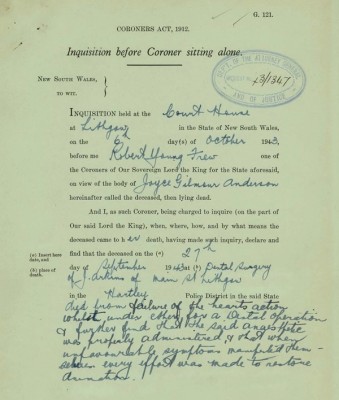 G. 121.
CORONERS ACT, 1912.
Inquisition before Coroner sitting alone.
DEPT. OF THE ATTORNEY GENERAL
43/1347
AND OF JUSTICE
NEW SOUTH WALES,
TO WIT.
INQUISITION held at the Court House
at Lithgow in the State of New South Wales,
on the 6th day(s) of October 1943,
before me Robert Young Frew one of
the Coroners of Our Sovereign Lord the King for the State aforesaid,
on view of the body of Joyce Gilmour Anderson
hereinafter called the deceased, then lying dead.
And I, as such Coroner, being charged to inquire (on the part of
Our said Lord the King), when, where, how, and by what means the
deceased came to her death, having made such inquiry, declare and
(a) Insert here date, and
find that the deceased on the (a) 27th
(b) place of death.
day of September 1943 at (b) Dental Surgery
of J. Arkins of main St Lithgow
in the Hartley Police District in the said State
died from failure of the hearts action
whilst under ether for a Dental operation
& further find that the said anaesthete
was properly administered, & that when
unfavourable symptoms manifested them-
selves every effort was made to restore
animation.